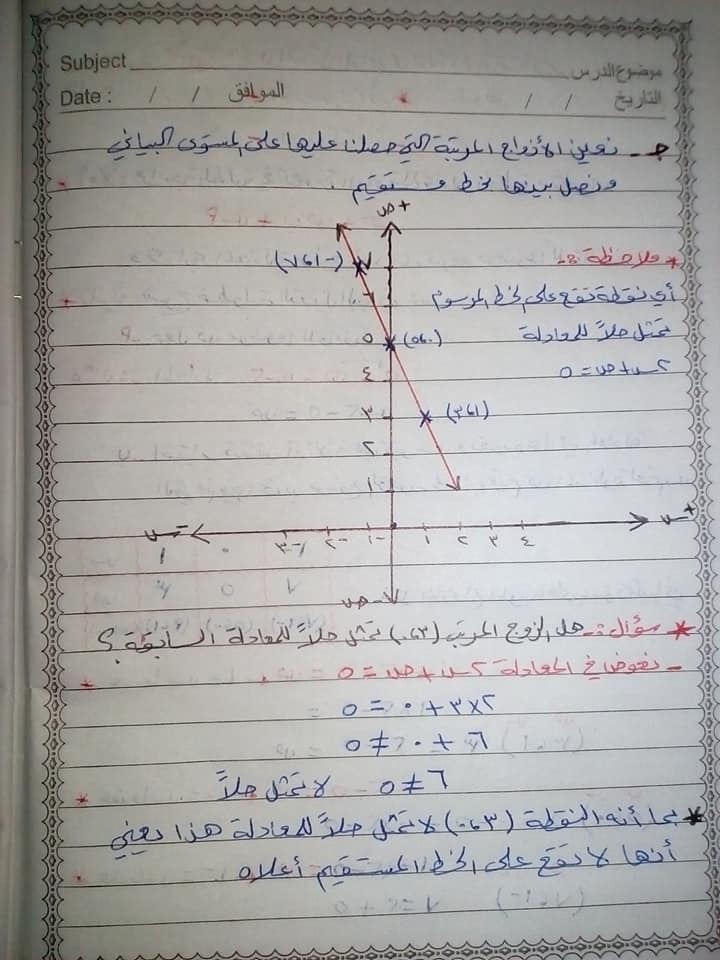 Subject موضوع الدرس
Date : / / الموافق / / التاريخ
جـ - نعين الأزواج المرتبة التي حصلنا عليها على المستوى البياني
ونصل بينها بخط مستقيم .
ص+
* ملاحظة :-
(-١، ٧) ٧
أي نقطة تقع على الخط المرسوم
٦
تمثل حلاً للمعادلة
٥ (٠، ٥)
٢س + ص = ٥
٤
٣ (١، ٣)
٢
١
س- -٣ -٢ -١ ١ ٢ ٣ ٤ س+
ص-
* سؤال :- هل الزوج المرتب (٣، ٠) تمثل حلاً للمعادلة السابقة ؟
- نعوض في المعادلة ٢س + ص = ٥
٢×٣ + ٠ = ٥
٦ + ٠ ≠ ٥
٦ ≠ ٥ لا تمثل حلاً
* بما أنه النقطة (٣، ٠) لا تمثل حلاً للمعادلة هذا يعني
أنها لا تقع على الخط المستقيم أعلاه